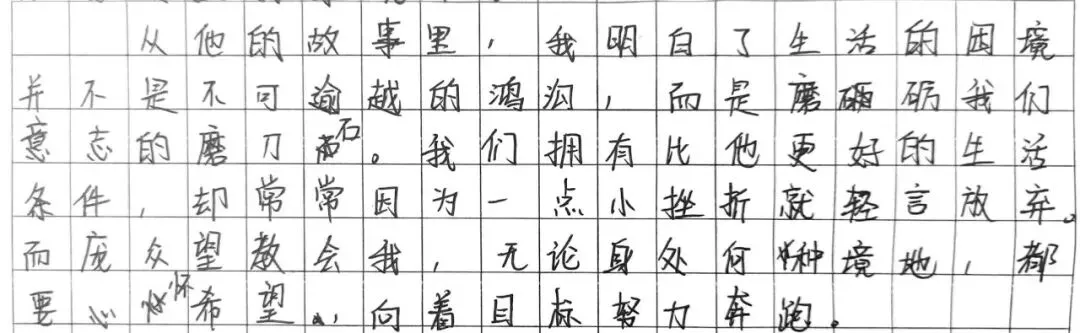 从他的故事里，我明白了生活的困境
并不是不可逾越的鸿沟，而是磨砺我们
意志的磨刀石。我们拥有比他更好的生活
条件，却常常因为一点小挫折就轻言放弃。
而庞众望教会我，无论身处何种境地，都
要心怀希望，向着目标努力奔跑。